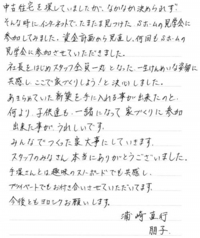 中古住宅を探していましたが、なかなか決められず、
そんな時に、インターネットで、たまたま見つけた、エホームの見学会に
参加してみました。資金計画から見直し、何回もエホームの
見学会に参加させていただきました。
社長をはじめスタッフ全員一丸となった、一生けんめいな姿勢に
共感し、ここで家づくりしよう！と決心しました。
あきらめていた新築を手に入れる事が出来たのと、
何より、子供達も、一緒になって家づくりに参加
出来た事が、うれしいです。
みんなでつくった家大事にしていきます。
スタッフのみなさん本当にありがとうございました。
さんとは趣味のスノーボードでも共感し、
プライベートでもお付き合いさせていただいてます。
今後ともヨロシクお願いします。
浦崎直行
朋子